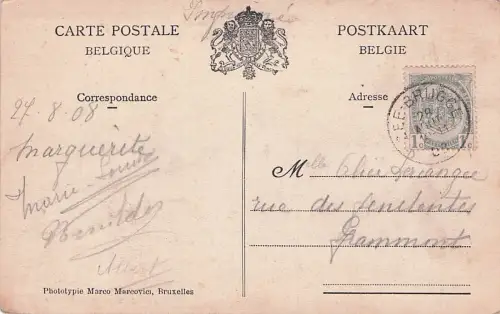 CARTE POSTALE
BELGIQUE
POSTKAART
BELGIE
Correspondance
Adresse
27.8.08
Marguerite
Marie-Louise
Albert
ZEE-BRUGGE
1c 1c
Mlle
rue des Penitentes
Grammont
Phototypie Marco Marcovici, Bruxelles